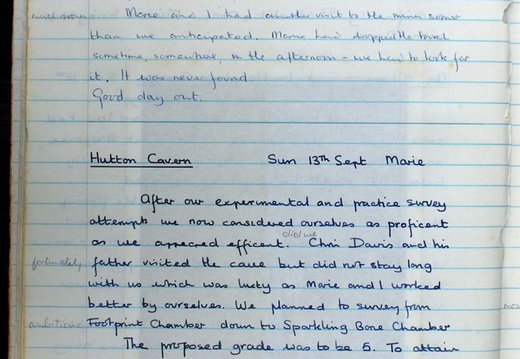 Marie and I had another visit to the mines sooner
than we anticipated. Marie had dropped the torch
sometime, somewhere, in the afternoon - we had to look for
it. It was never found.
Good day out.
Hutton Cavern Sun 13th Sept Marie
After our experimental and practice survey
attempts we now considered ourselves as proficent
as we appeared efficent. Chris Davis and his
did we
fortunately
father visited the cave but did not stay long
with us which was lucky as Marie and I worked
better by ourselves. We planned to survey from
ambitious
Footprint Chamber down to Sparkling Bone Chamber
The proposed grade was to be 5. To attain